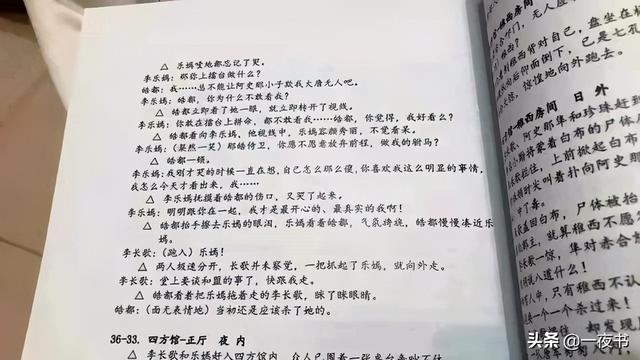 △ 乐嫣哇地都忘记了哭。
李乐嫣：那你上擂台做什么？
皓都：我……怂不能让阿史那小子欺我大唐无人吧。
李乐嫣：皓都，你为什么不敢看我？
△ 皓都立即看了她一眼，就立即转开了视线。
李乐嫣：你敢在擂台上拼命，都不敢看我……皓都，你觉得，我好看么？
△ 皓都看向李乐嫣，他视线中，乐嫣容颜秀丽，不觉看呆。
李乐嫣：（凝然一笑）那皓侍卫，你愿不愿意放弃前程，做我的驸马？
△ 皓都一顿。
李乐嫣：我刚才哭的时候一直在想，自己怎么那么傻，你喜欢我这么明显的事情，
我怎么今天才看出来，我……
△ 李乐嫣抚摸着皓都的伤口，又哭了起来。
李乐嫣：明明跟你在一起，我才是最开心的、最真实的我啊！
△ 皓都抬手擦去乐嫣的眼泪，乐嫣看着皓都，气氛旖旎，皓都慢慢凑近乐
嫣。
李长歌：（跑入）乐嫣！
△ 两人极速分开，长歌并未察觉，一把抓起了乐嫣，就向外走。
李长歌：堂上要谈和盟的事了，快跟我走。
△ 皓都看着把乐嫣拖着走的李长歌，眯了眯眼睛。
皓都：（面无表情地）当初还是应该杀了她的。
36-33. 四方馆-正厅 夜 内
△ 李长歌和乐嫣赶入四方馆内
无人应
背对自己，盘坐在
后仰面倒下，已是七孔
惊慌地向外跑去。
雅西房间 日 外
阿史那隼和珍珠赶到
着白布的尸体
上前掀起白布
叫着扑向阿史那
中了毒。
盖回白布，尸体被抬
就算稚西不愿
隼对赤合
说入道什么！
中，只有稚西不认
个一个杀过来！
头条 @一夜书